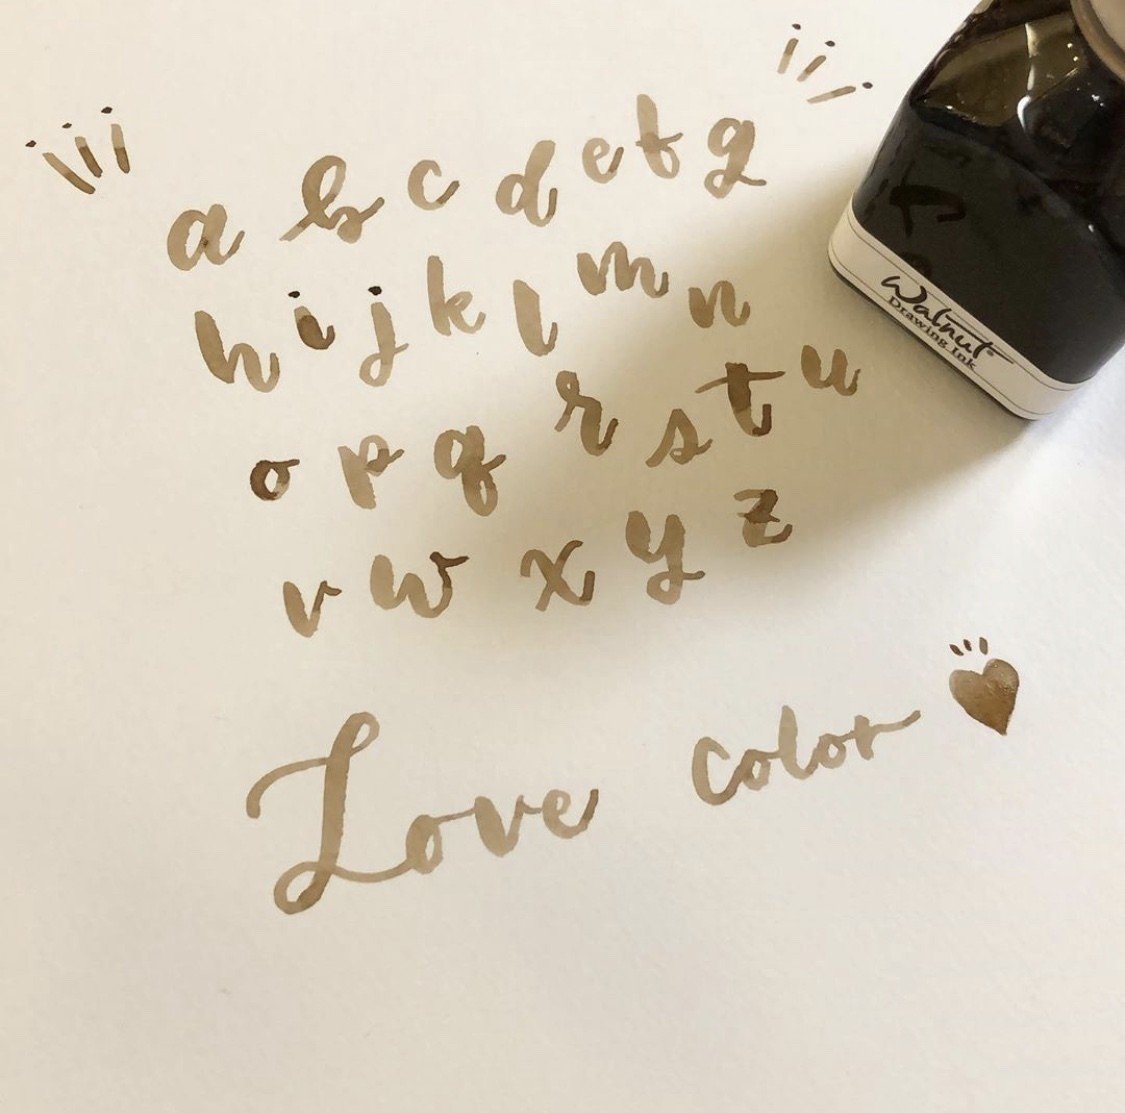 a b c d e f g
h i j k l m n
o p q r s t u
v w x y z
Love color
Walnut
Drawing Ink